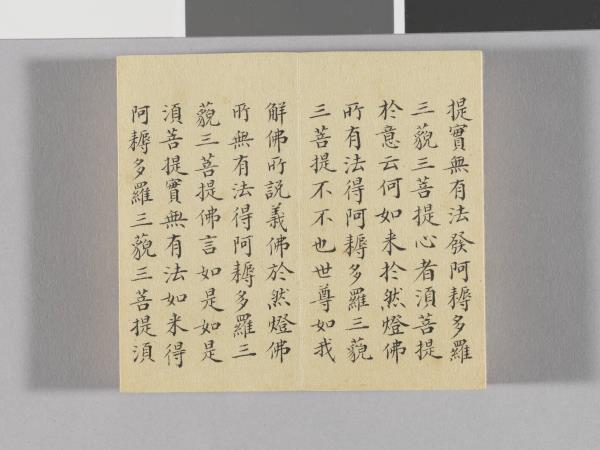 提實無有法發阿耨多羅
三藐三菩提心者須菩提
於意云何如来於然燈佛
所有法得阿耨多羅三藐
三菩提不不也世尊如我
解佛所説義佛於然燈佛
所無有法得阿耨多羅三
藐三菩提佛言如是如是
須菩提實無有法如来得
阿耨多羅三藐三菩提須